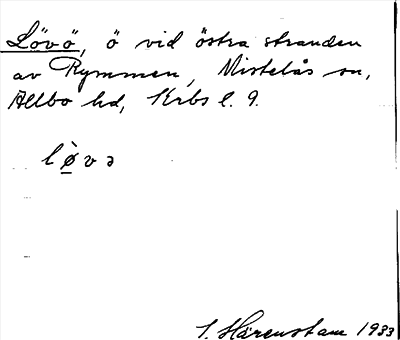 Lövö, ö vid östra stranden
av Rymmen, Mistelås sn,
Allbo hd, Krbs l. 9.
lø̀və
I. Härenstam 1933